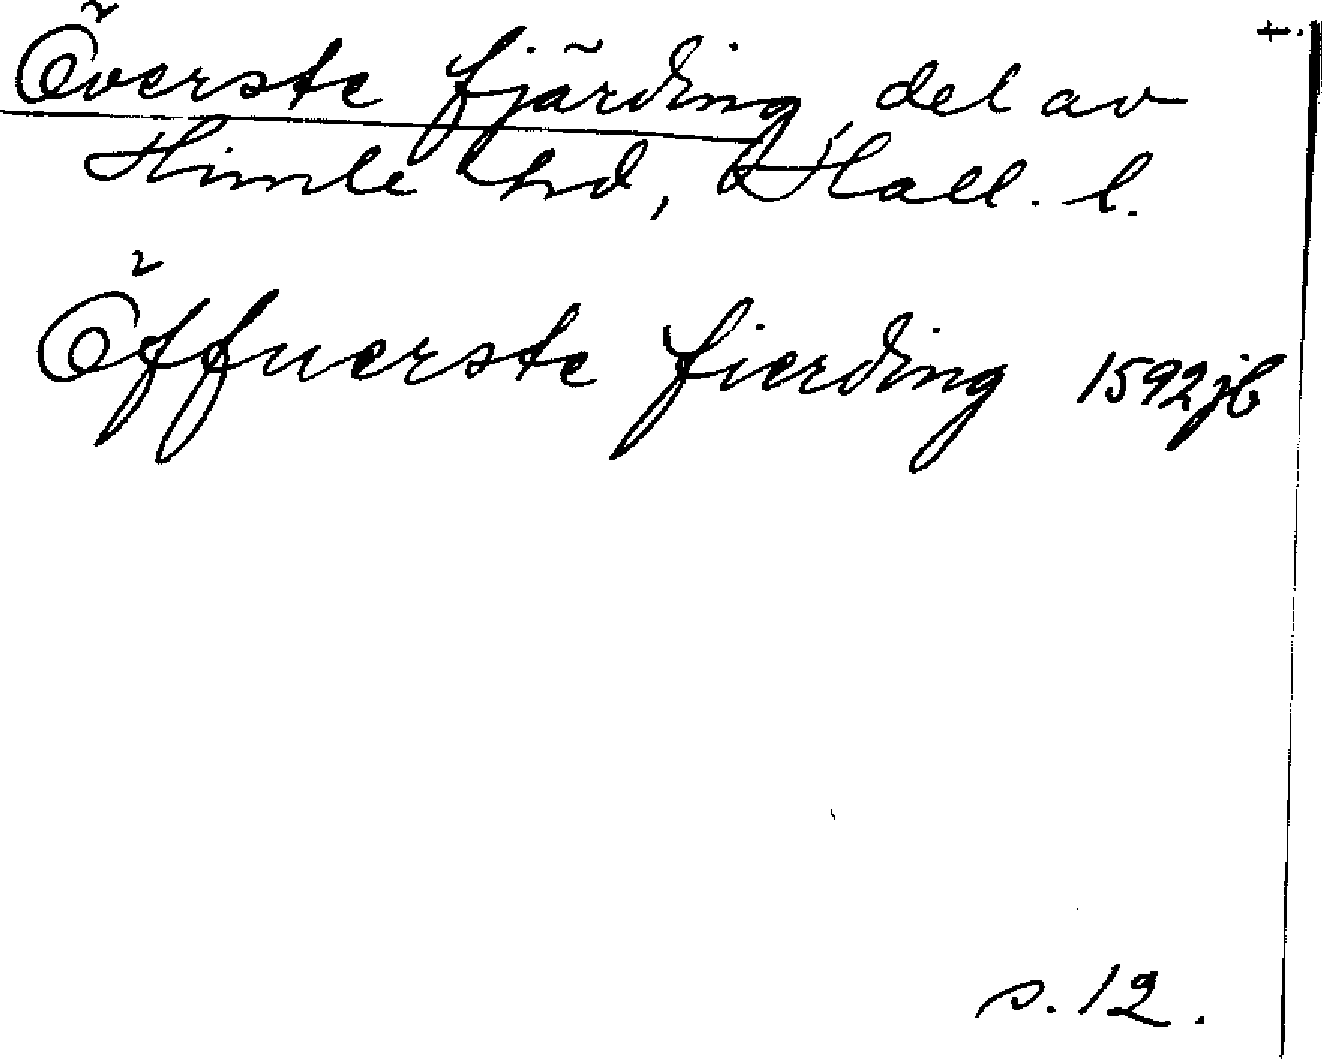 Överste fjärding, del av t.
Himle hd, Hall. l.
Öffuerste fierding 1592 jb
s. 12.